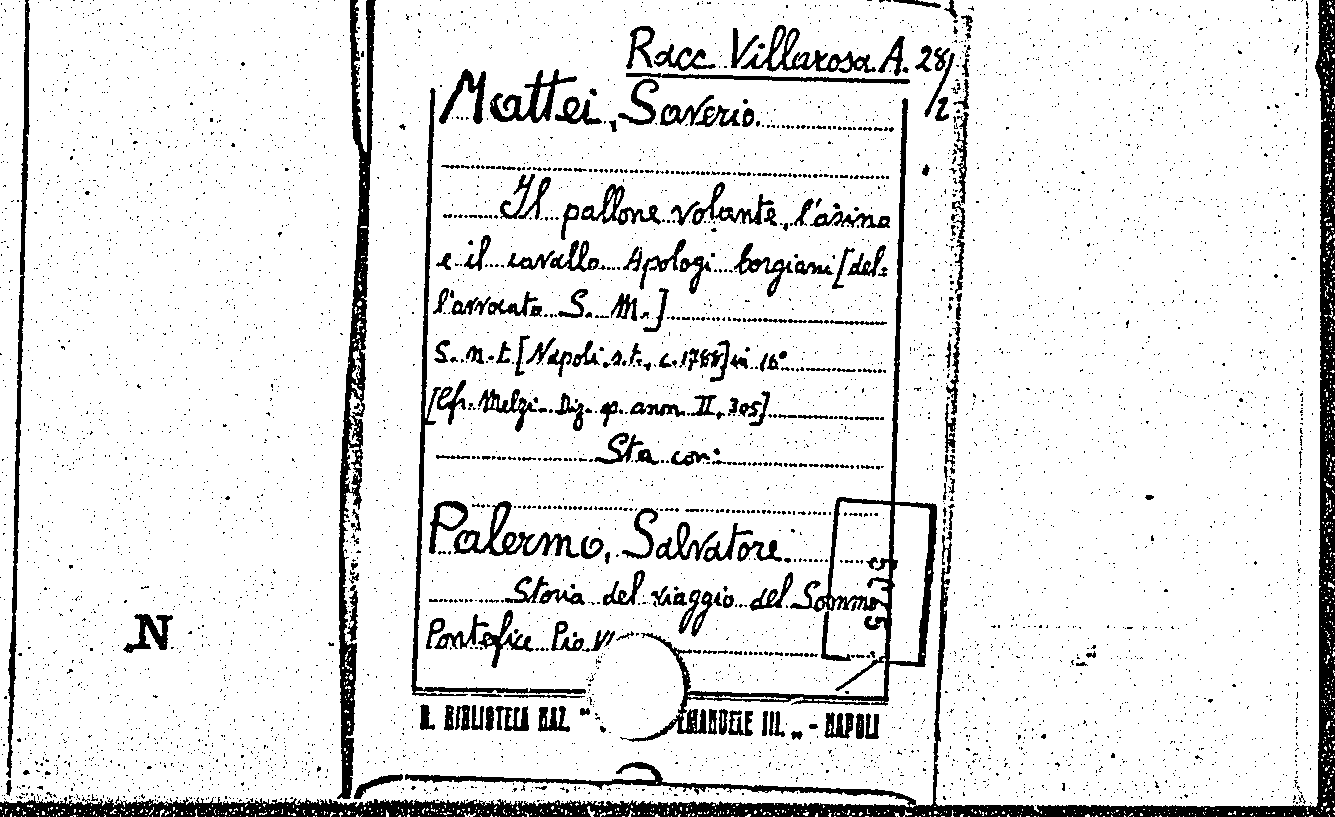 Racc Villarosa A. 28/2
Mattei, Saverio.
Il pallone volante, l'asino
e il cavallo Apologi borgiani [del-
l'avvocato S. M.]
S. n. t. [Napoli, s.t., c. 1788] in 16°
[Cfr. Melzi Diz. op. anon II, 305]
Sta con:
Palermo, Salvatore.
Storia del viaggio del Sommo
Pontefice Pio VI
R. BIBLIOTECA NAZ. " EMANUELE III. „ - NAPOLI
N